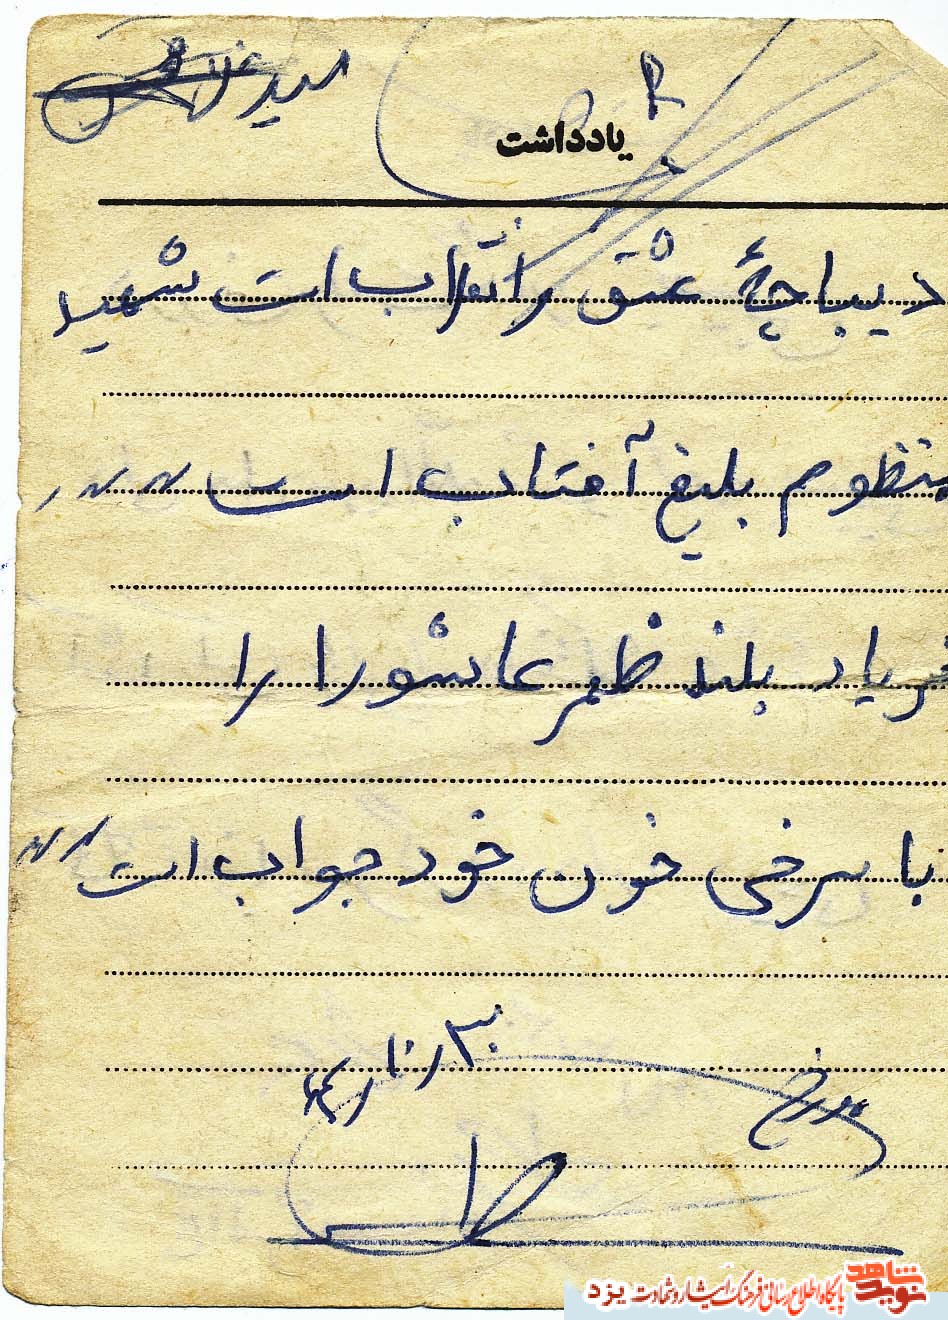 R
یادداشت
دیباچهٔ عشق و انقلاب است شهید
منظوم بلیغ آفتاب است
فریاد بلند ظهر عاشورا را
با سرخی خون خود جواب است
مورخ
نوید شاهد
پایگاه اطلاع رسانی فرهنگ ایثار و شهادت یزد